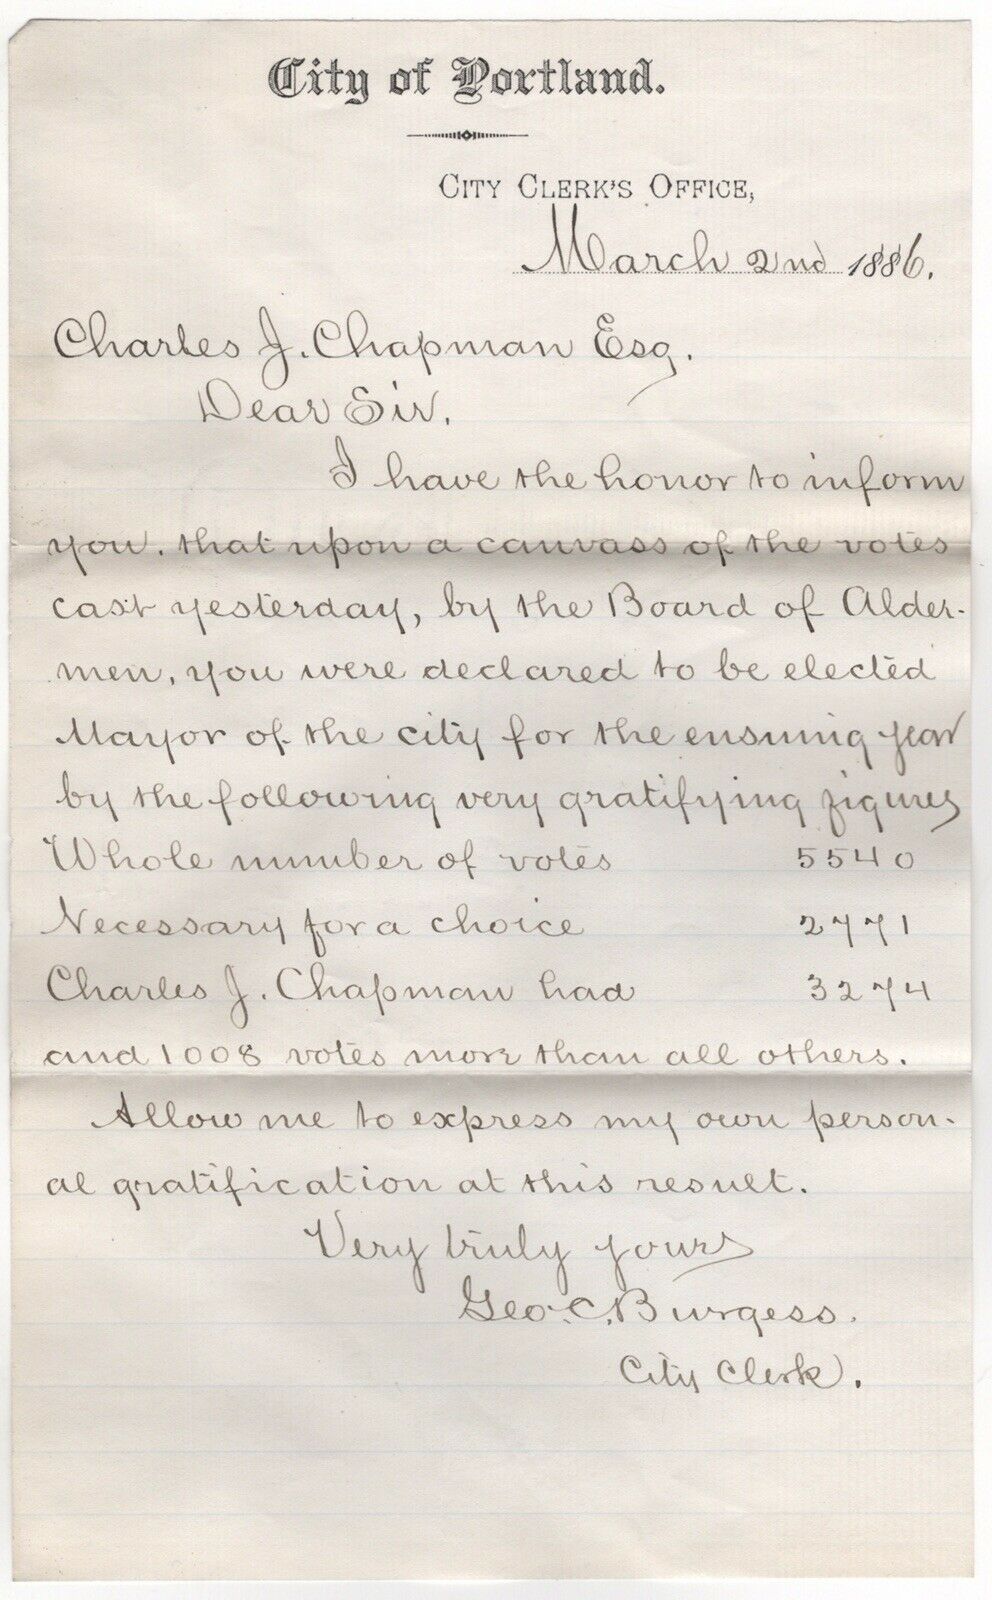 City of Portland.
City Clerk's Office,
March 2nd 1886.
Charles J. Chapman Esq.
Dear Sir.
I have the honor to inform
you, that upon a canvass of the votes
cast yesterday, by the Board of Alder-
men, you were declared to be elected
Mayor of the city for the ensuing year
by the following very gratifying figures
Whole number of votes 5540
Necessary for a choice 2771
Charles J. Chapman had 3274
and 1008 votes more than all others.
Allow me to express my own person-
al gratification at this result.
Very truly yours
Geo. C. Burgess.
City Clerk.